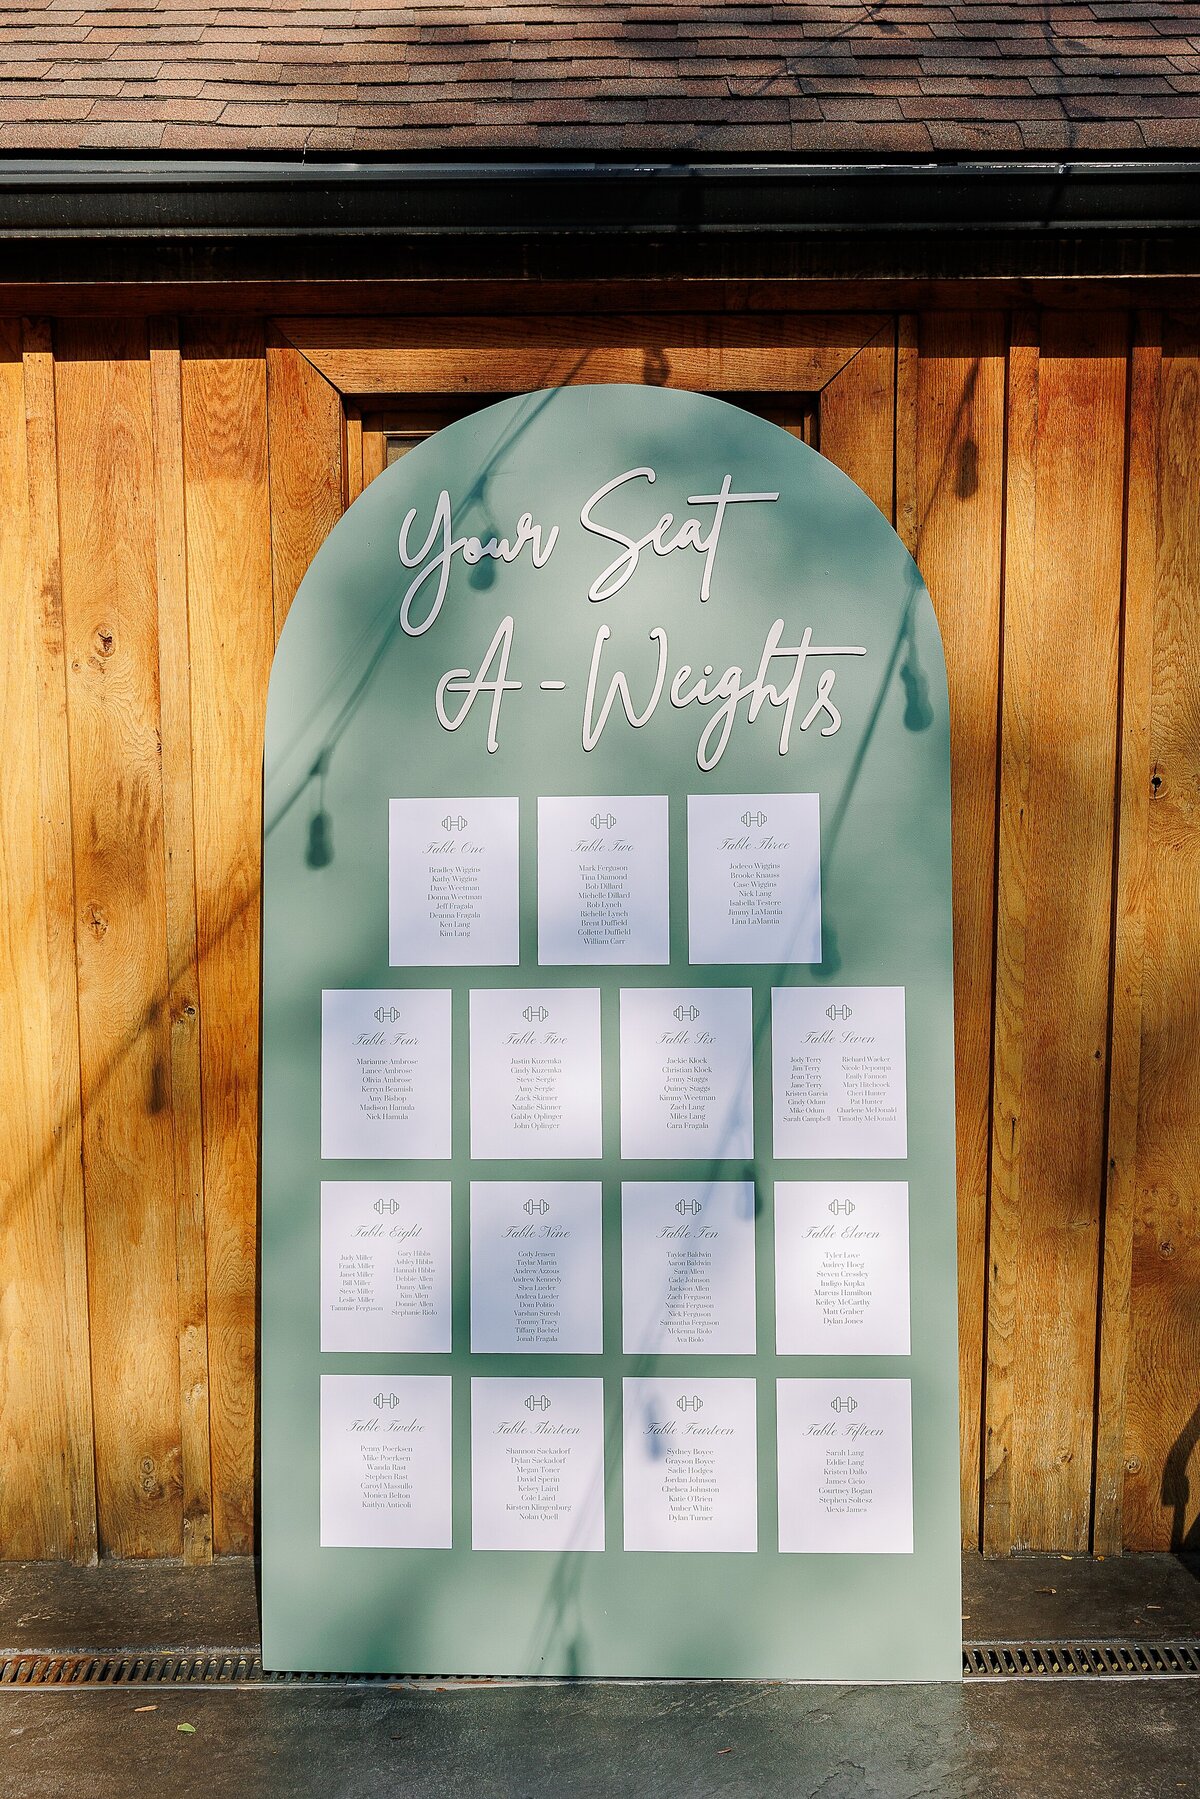 Your Seat
A-Weights
Table One
Bradley Wiggins
Kathy Wiggins
Dave Weetman
Donna Weetman
Jeff Fragala
Deanna Fragala
Ken Lang
Kim Lang
Table Two
Mark Ferguson
Tina Diamond
Bob Dillard
Michelle Dillard
Rob Lynch
Richelle Lynch
Brent Duffield
Collette Duffield
William Carr
Table Three
Jodeco Wiggins
Brooke Knauss
Case Wiggins
Nick Lang
Isabella Testere
Jimmy LaMantia
Lina LaMantia
Table Four
Marianne Ambrose
Lance Ambrose
Olivia Ambrose
Kerryn Beamish
Amy Bishop
Madison Hamula
Nick Hamula
Table Five
Justin Kuzemka
Cindy Kuzemka
Steve Sergie
Amy Sergie
Zack Skinner
Natalie Skinner
Gabby Oplinger
John Oplinger
Table Six
Jackie Klock
Christian Klock
Jenny Staggs
Quincy Staggs
Kimmy Weetman
Zach Lang
Miles Lang
Cara Fragala
Table Seven
Jody Terry
Jim Terry
Jean Terry
Jane Terry
Kristen Garcia
Cindy Odum
Mike Odum
Sarah Campbell
Richard Waeker
Nicole Depompa
Emily Fannon
Mary Hitchcock
Cheri Hunter
Pat Hunter
Charlene McDonald
Timothy McDonald
Table Eight
Judy Miller
Frank Miller
Janet Miller
Bill Miller
Steve Miller
Leslie Miller
Tammie Ferguson
Gary Hibbs
Ashley Hibbs
Hannah Hibbs
Debbie Allen
Danny Allen
Kim Allen
Donnie Allen
Stephanie Riolo
Table Nine
Cody Jensen
Taylar Martin
Andrew Azzous
Andrew Kennedy
Shea Lueder
Andrea Lueder
Dom Politio
Varshan Suresh
Tommy Tracy
Tiffany Bachtel
Jonah Fragala
Table Ten
Taylor Baldwin
Aaron Baldwin
Sara Allen
Cade Johnson
Jackson Allen
Zach Ferguson
Naomi Ferguson
Nick Ferguson
Samantha Ferguson
Mckenna Riolo
Ava Riolo
Table Eleven
Tyler Love
Audrey Hoeg
Steven Cressley
Indigo Kupka
Marcus Hamilton
Keiley McCarthy
Matt Graber
Dylan Jones
Table Twelve
Penny Poerksen
Mike Poerksen
Wanda Rast
Stephen Rast
Caroyl Massullo
Monica Belton
Kaitlyn Anticoli
Table Thirteen
Shannon Sackadorf
Dylan Sackadorf
Megan Toner
David Sperin
Kelsey Laird
Cole Laird
Kirsten Klingenburg
Nolan Quell
Table Fourteen
Sydney Boyce
Grayson Boyce
Sadie Hodges
Jordan Johnson
Chelsea Johnston
Katie O'Brien
Amber White
Dylan Turner
Table Fifteen
Sarah Lang
Eddie Lang
Kristen Dallo
James Cicio
Courtney Bogan
Stephen Soltesz
Alexis James